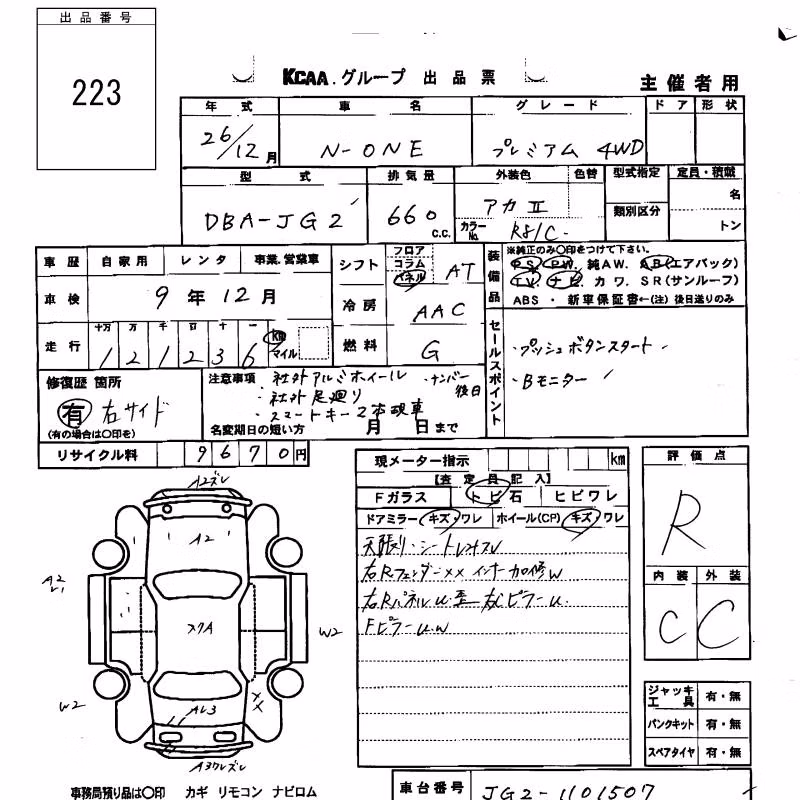 出品番号
223
KCAA.グループ 出品票
主催者用
年式 車名 グレード ドア 形状
26/12月 N-ONE プレミアム 4WD
型式 排気量 外装色 色替 型式指定 定員・積載
DBA-JG2 660 c.c. アカⅡ 名
カラーNo. R81C 類別区分 トン
車歴 自家用 レンタ 事業.営業車
車検 9年12月
走行 十万 万 千 百 十 一
121236 km マイル
シフト フロア コラム パネル AT
冷房 AAC
燃料 G
装備品 ※純正のみ〇印をつけて下さい。
PS PW 純AW. AB(エアバック)
TV ナビ カワ. SR(サンルーフ)
ABS ・ 新車保証書←(注) 後日送りのみ
セールスポイント
・プッシュボタンスタート
・Bモニター
修復歴 箇所
有 右サイド
(有の場合は〇印を)
注意事項 ・社外アルミホイール ・ナンバー後日
・社外足廻り
・スマートキー2本現車
名変期日の短い方 月 日まで
リサイクル料 9670円
現メーター指示 km
【査定員記入】
Fガラス トビ石 ヒビワレ
ドアミラー キズ・ワレ ホイール(CP) キズ・ワレ
右Rフェンダー××インナー加修W
Fピラーu.w
評価点
R
内装 外装
C C
A2ズレ
A2
A2
W2
W2
AL3
××
ジャッキ工具 有・無
パンクキット 有・無
スペアタイヤ 有・無
事務局預り品は〇印 カギ リモコン ナビロム
車台番号 JG2-1101507